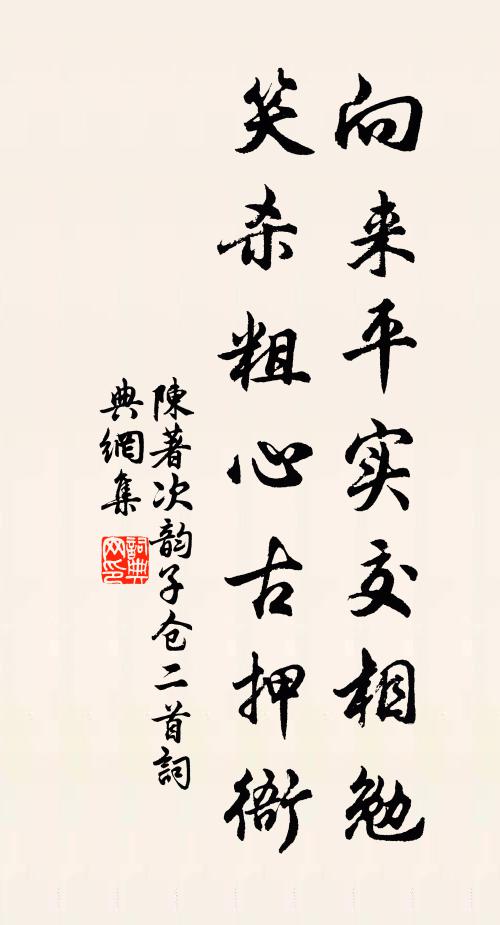 向来平实交相勉
笑杀粗心古押衙
陳著次韵子仓二首詞
典網集
詞典网印